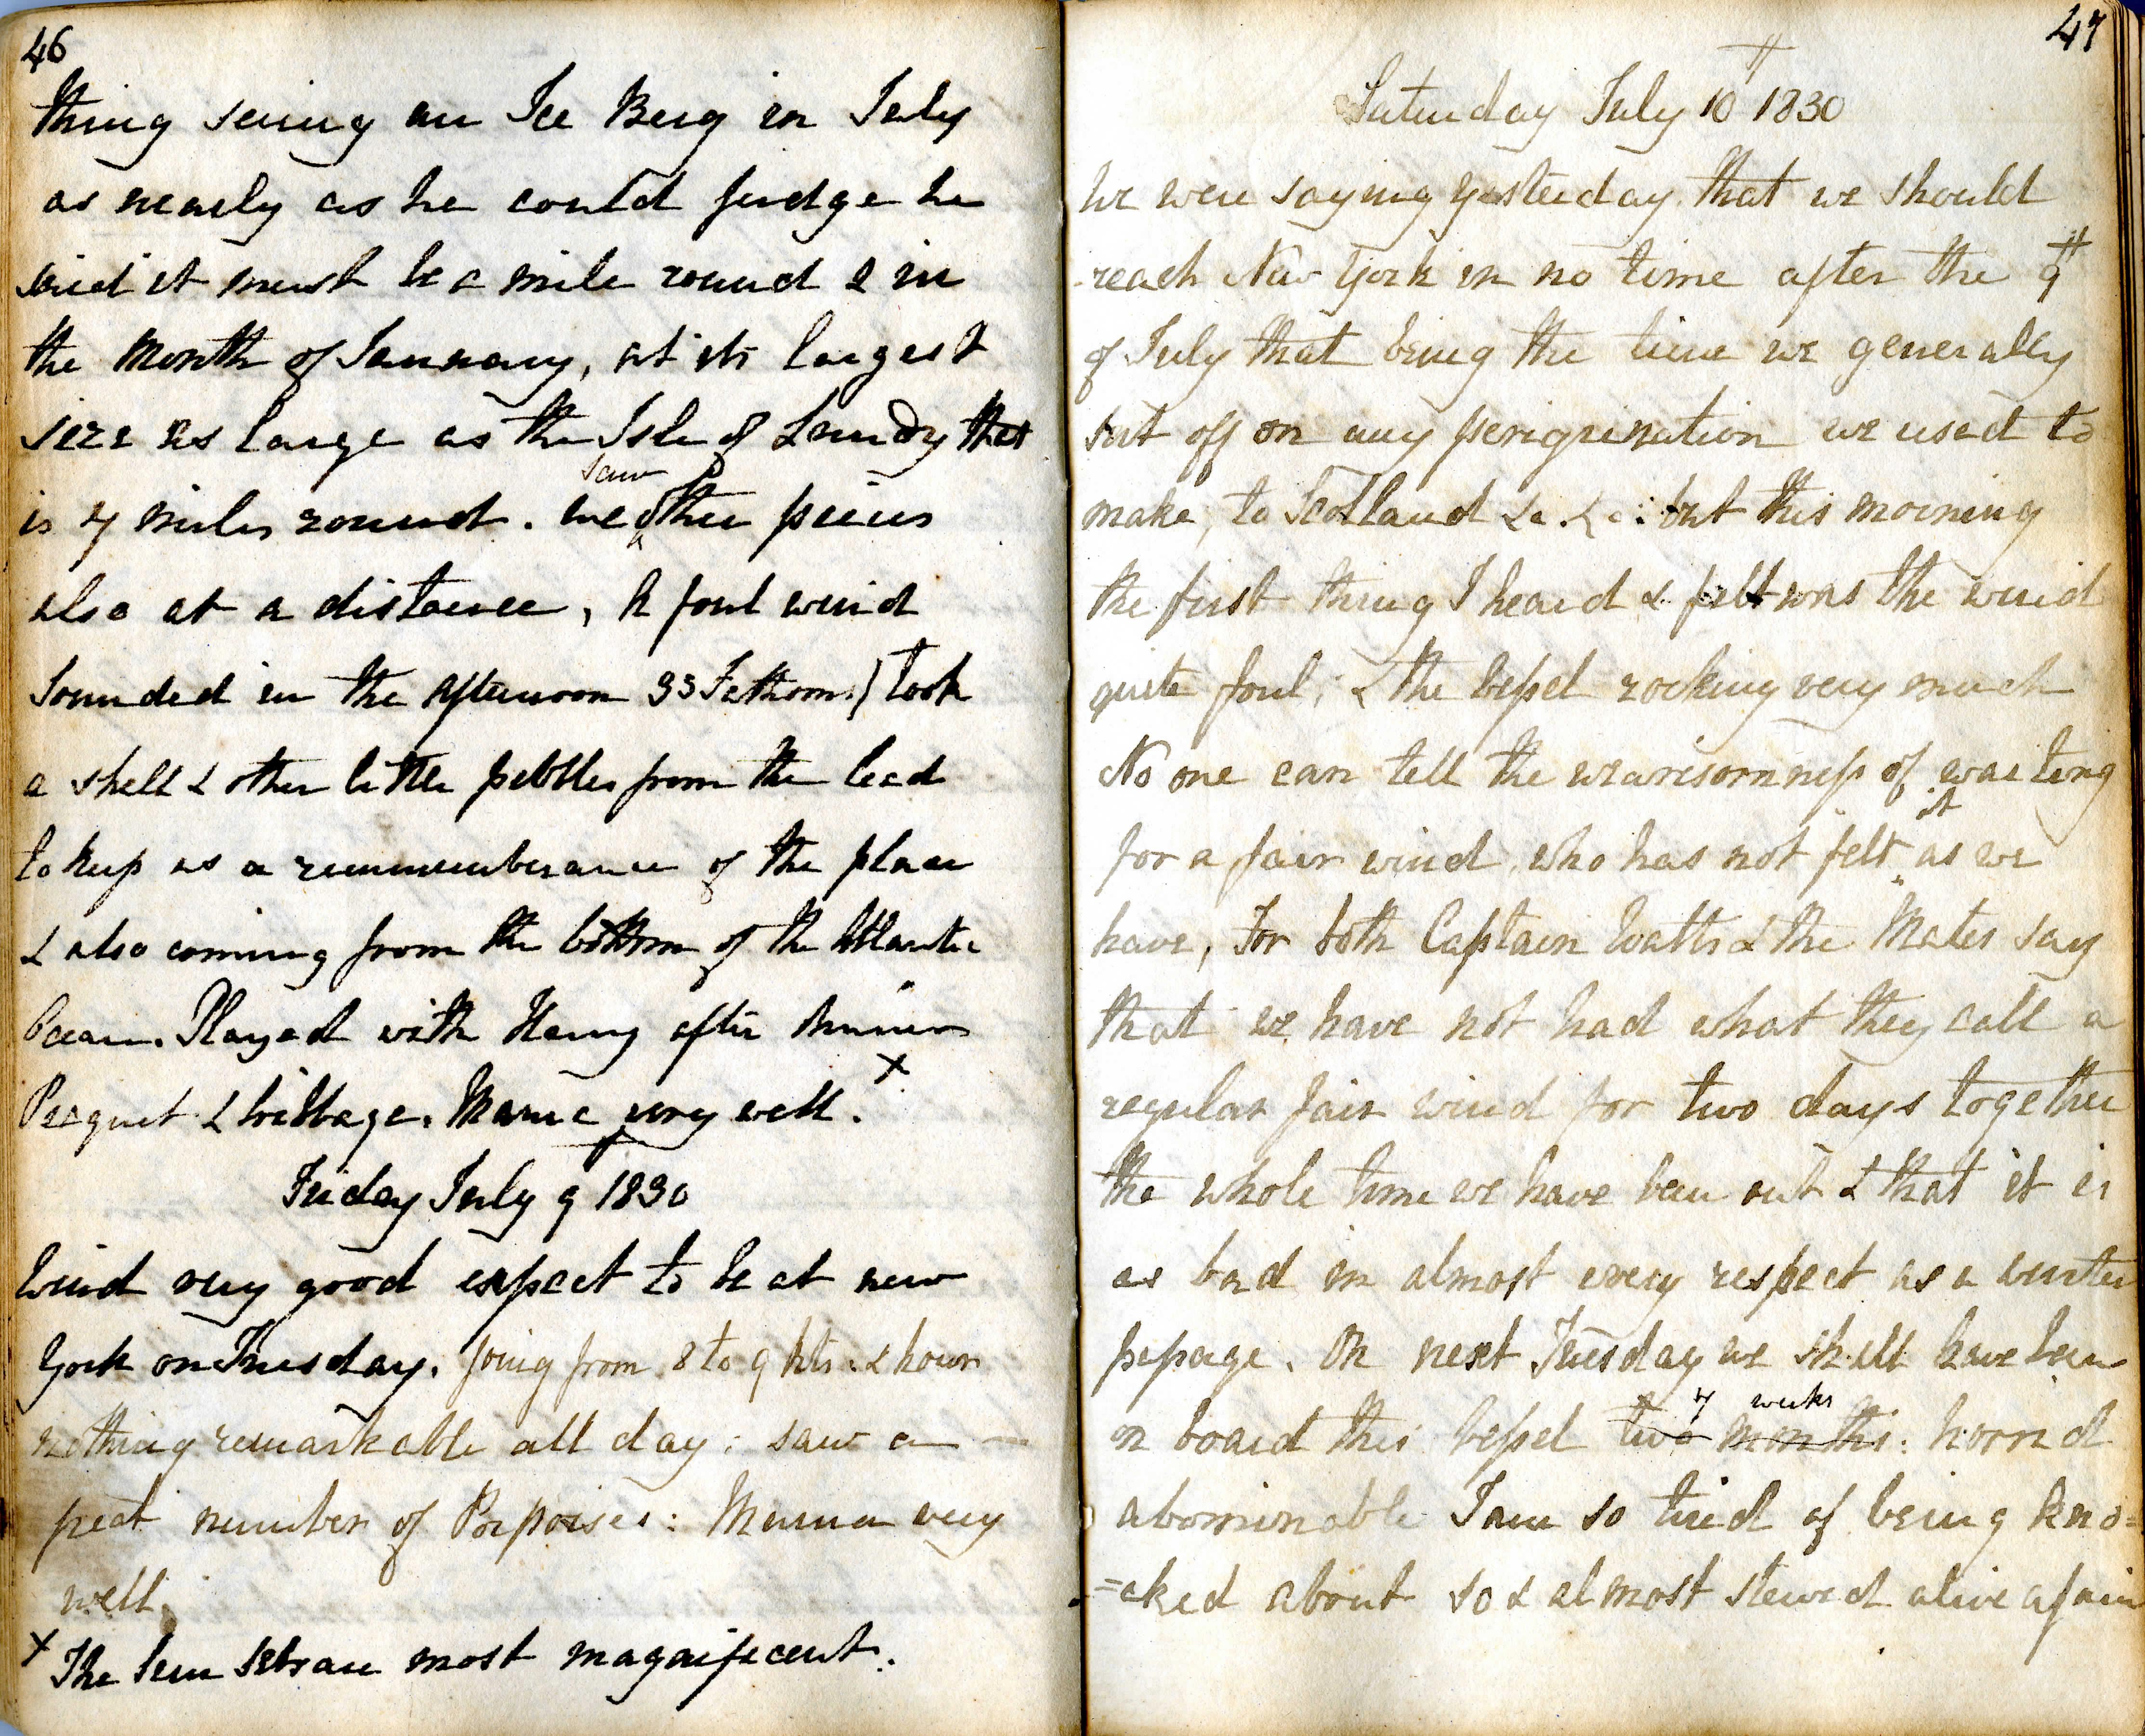 46
thing seeing an Ice Berg in July
as nearly as he could judge he
said it must be a mile round & in
the Month of January, at its largest
size as large as the Isle of Lundy that
is 7 miles round. we saw other pieces
also at a distance, A foul wind
Sounded in the Afternoon 33 Fathoms) took
a shell & other little pebbles from the lead
to keep as a remmemberance of the place
& also coming from the bottom of the Atlantic
Ocean. Played with Henry after dinner
Pecquet & Cribbage. Mama very well. x
Friday July 9th 1830
Wind very good expect to be at new
York on Tuesday. going from 8 to 9 kts: & hour
nothing remarkable all day: saw a
great number of Porpoises: Mama very
well.
x The Sun Sets are most magnificent.
47
Saturday July 10th 1830
We were saying yesterday that we should
reach New York in no time after the 9th
of July that being the time we generally
set off on any perigrination we used to
make, to Scotland &c. &c: but this morning
the first thing I heard & felt was the wind
quite foul; & the Vessel rocking very much
No one can tell the wearisomness of waiting
for a fair wind, who has not felt it as we
have, For both Captain Watts & the Mates say
that we have not had what they call a
regular fair wind for two days together
the whole time we have been out & that it is
as bad in almost every respect as a winter
passage. On next Tuesday we shall have been
on board this Vessel two months 7 weeks: horrid
abominable I am so tired of being kno=
=cked about so & almost stewed alive again